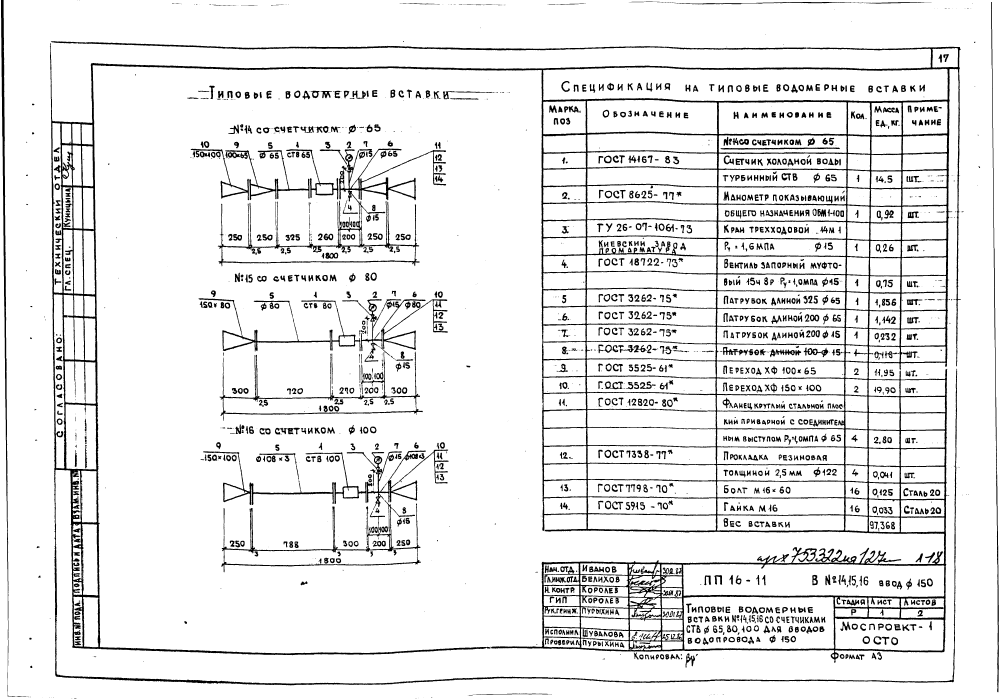 17
Типовые водомерные вставки
№14 со счетчиком ф 65
10 9 5 1 3 2 7 6 11
150×100 100×65 ф 65 СТВ 65 ф15 ф65 12
13
14
200
8
4 ф15
100 100
250 250 325 260 200 250 250
2,5 2,5 2,5 2,5 2,5
1800
№15 со счетчиком ф 80
9 5 1 3 2 7 6 10
150×80 ф 80 СТВ 80 ф15 ф80 11
12
13
200
8
4 ф15
100 100
300 720 270 200 300
2,5 2,5 2,5 2,5
1800
№16 со счетчиком ф 100
9 5 1 3 2 7 6 10
150×100 ф108×3 СТВ 100 ф15 ф108×3 11
12
13
200
8
4 ф15
100 100
250 788 300 200 250
3 3 3 3
1800
Спецификация на типовые водомерные вставки
Марка, поз Обозначение Наименование Кол. Масса ед., кг. Примечание
№14 со счетчиком ф 65
1. ГОСТ 14167-83 Счетчик холодной воды
турбинный СТВ ф 65 1 14.5 шт.
2. ГОСТ 8625-77* Манометр показывающий
общего назначения ОБМ1-100 1 0,92 шт.
3. ТУ 26-07-1061-73 Кран трехходовой 14М1
Киевский завод Промарматура Ру = 1,6МПа ф15 1 0,26 шт.
4. ГОСТ 18722-73* Вентиль запорный муфто-
вый 15ч 8р Ру=1,0мпа ф15 1 0,75 шт.
5 ГОСТ 3262-75* Патрубок длиной 325 ф 65 1 1,856 шт.
6. ГОСТ 3262-75* Патрубок длиной 200 ф 65 1 1,142 шт.
7. ГОСТ 3262-75* Патрубок длиной 200 ф 15 1 0,232 шт.
8. ГОСТ 3262-75* Патрубок длиной 100 ф 15 1 0,116 шт.
9. ГОСТ 5525-61* Переход ХФ 100×65 2 11,95 шт.
10. ГОСТ 5525-61* Переход ХФ 150×100 2 19,90 шт.
11. ГОСТ 12820-80* Фланец круглый стальной плос
кий приварной с соединитель
ным выступом Ру=1,0мпа ф 65 4 2.80 шт.
12. ГОСТ 7338-77* Прокладка резиновая
толщиной 2,5 мм ф122 4 0,041 шт.
13. ГОСТ 7798-70* Болт М16×60 16 0,125 Сталь 20
14. ГОСТ 5915-70* Гайка М16 16 0,033 Сталь 20
Вес вставки 97,368
Технический отдел
Гл. спец. Куницина
Согласовано:
Инв.№ подл. Подписи дата Взам.инв.№
Нач. отд. Иванов
Гл.инж.отд. Белихов
Н. контр. Королев
ГИП Королев
Рук.гр.инж. Пурыхина
Исполнил Шувалова
Проверил Пурыхина
ПП 16-11 В №14,15,16 ввод ф 150
Типовые водомерные
вставки №14,15,16 со счетчиками
СТВ ф 65,80,100 для вводов
водопровода ф 150
Стадия Лист Листов
Р 1 2
Моспроект-1
ОСТО
Копировал:
Формат А3